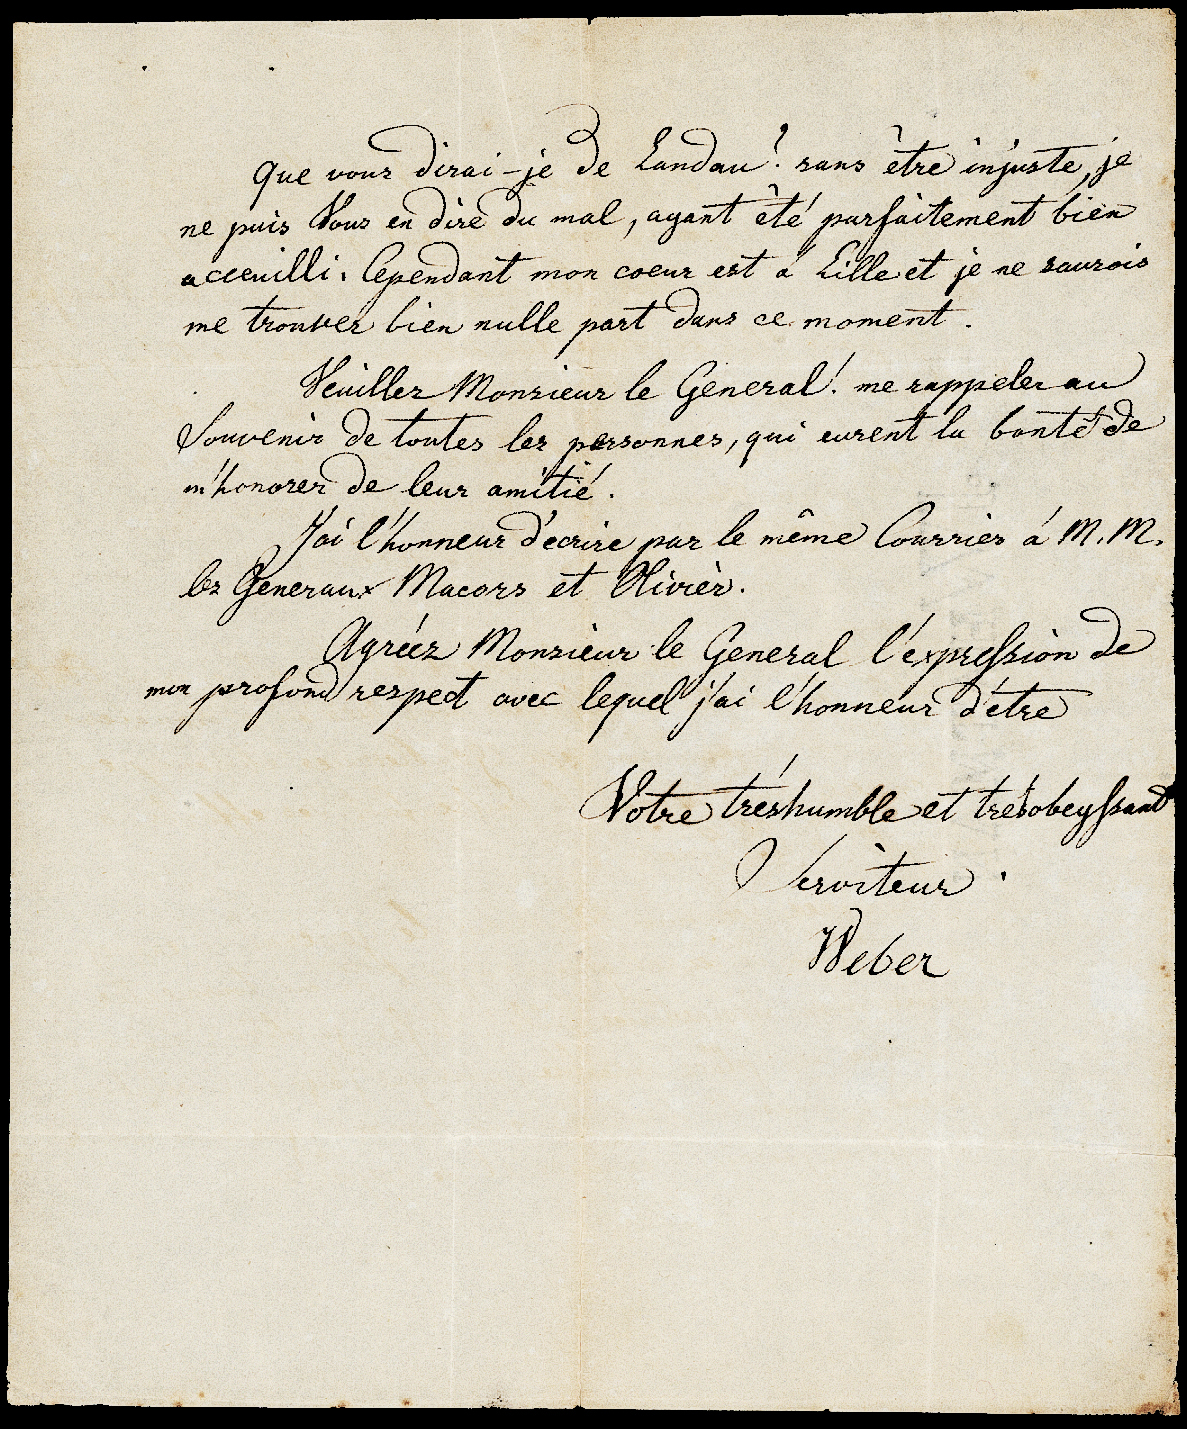 Que vous dirai-je de Landau? sans être injuste, je
ne puis Vous en dire du mal, ayant été parfaitement bien
acceuilli. Cependant mon coeur est á Lille et je ne saurois
me trouver bien nulle part dans ce moment.
Veuillez Monsieur le General! me rappeler au
Souvenir de toutes les personnes, qui eurent la bonté de
m'honorer de leur amitié.
J'ai l'honneur d'ecrire par le même Courrier á M. M.
les Generaux Macors et Olivier.
Agréez Monsieur le General l'expression de
mon profond respect avec lequel j'ai l'honneur d'étre
Votre tréshumble et trésobeyssant
Serviteur.
Weber